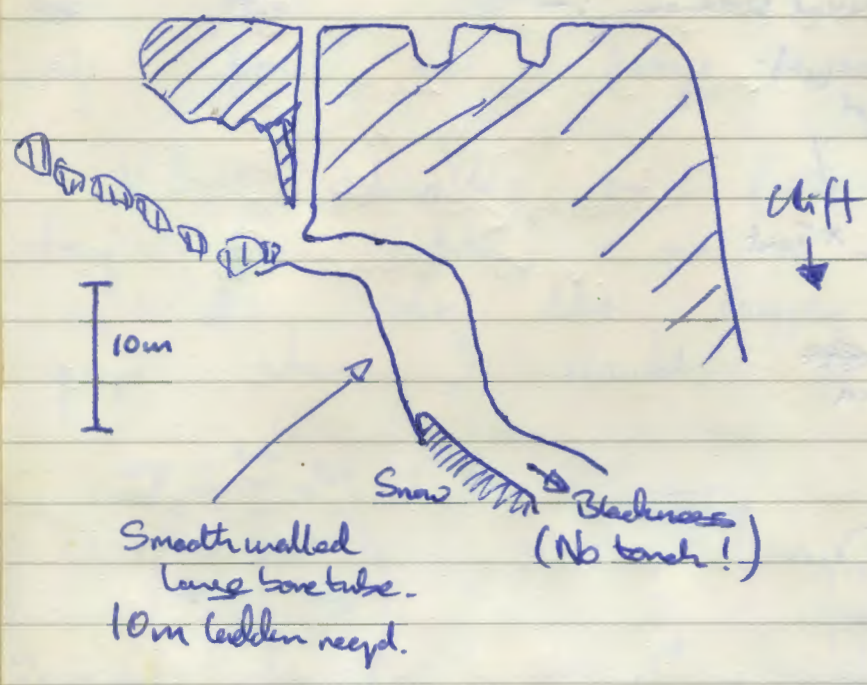 Cliff
10m
Snow
Blackness
(No torch!)
Smooth walled
large bore tube.
10m ladder reqd.